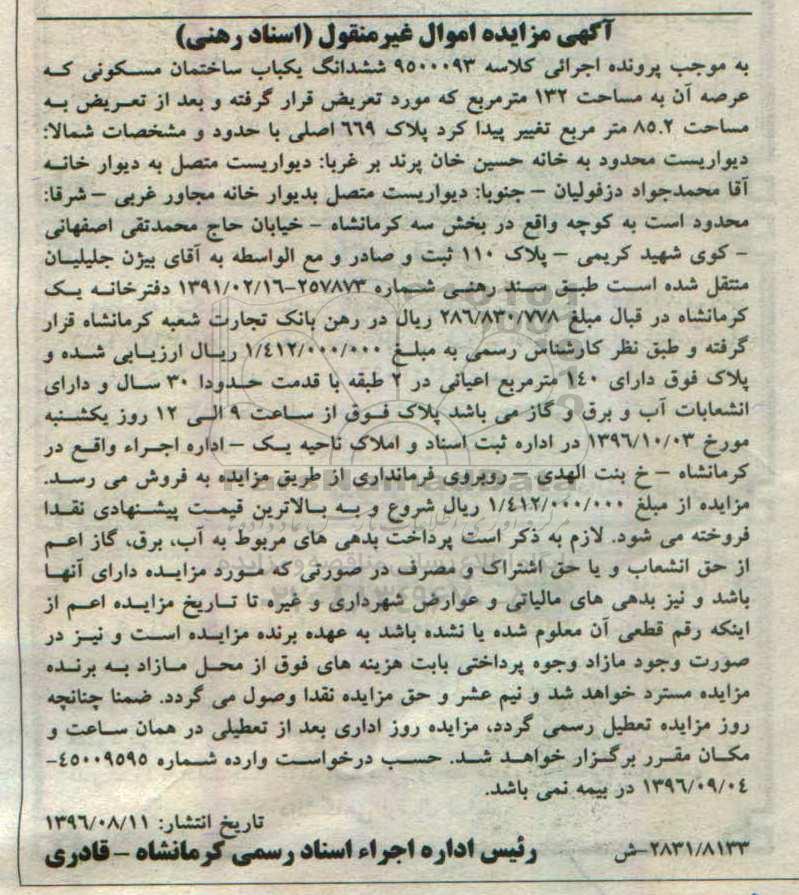 آگهی مزایده اموال غیرمنقول (اسناد رهنی)
به موجب پرونده اجرائی کلاسه ۹۵۰۰۰۹۳ ششدانگ یکباب ساختمان مسکونی که
عرصه آن به مساحت ۱۳۲ مترمربع که مورد تعریض قرار گرفته و بعد از تعریض به
مساحت ۸۵.۲ متر مربع تغییر پیدا کرد پلاک ۶۶۹ اصلی با حدود و مشخصات شمالا:
دیواریست محدود به خانه حسین خان پرند بر غربا: دیواریست متصل به دیوار خانه
آقا محمدجواد دزفولیان – جنوبا: دیواریست متصل بدیوار خانه مجاور غربی – شرقا:
محدود است به کوچه واقع در بخش سه کرمانشاه – خیابان حاج محمدتقی اصفهانی
– کوی شهید کریمی – پلاک ۱۱۰ ثبت و صادر و مع الواسطه به آقای بیژن جلیلیان
منتقل شده است طبق سند رهنی شماره ۲۵۷۸۷۳-۱۳۹۱/۰۲/۱۶ دفترخانه یک
کرمانشاه در قبال مبلغ ۲۸۶/۸۳۰/۷۷۸ ریال در رهن بانک تجارت شعبه کرمانشاه قرار
گرفته و طبق نظر کارشناس رسمی به مبلغ ۱/۴۱۲/۰۰۰/۰۰۰ ریال ارزیابی شده و
پلاک فوق دارای ۱۴۰ مترمربع اعیانی در ۲ طبقه با قدمت حدودا ۳۰ سال و دارای
انشعابات آب و برق و گاز می باشد پلاک فوق از ساعت ۹ الی ۱۲ روز یکشنبه
مورخ ۱۳۹۶/۱۰/۰۳ در اداره ثبت اسناد و املاک ناحیه یک – اداره اجراء واقع در
کرمانشاه – خ بنت الهدی – روبروی فرمانداری از طریق مزایده به فروش می رسد.
مزایده از مبلغ ۱/۴۱۲/۰۰۰/۰۰۰ ریال شروع و به بالاترین قیمت پیشنهادی نقدا
فروخته می شود. لازم به ذکر است پرداخت بدهی های مربوط به آب، برق، گاز اعم
از حق انشعاب و یا حق اشتراک و مصرف در صورتی که مورد مزایده دارای آنها
باشد و نیز بدهی های مالیاتی و عوارض شهرداری و غیره تا تاریخ مزایده اعم از
اینکه رقم قطعی آن معلوم شده یا نشده باشد به عهده برنده مزایده است و نیز در
صورت وجود مازاد وجوه پرداختی بابت هزینه های فوق از محل مازاد به برنده
مزایده مسترد خواهد شد و نیم عشر و حق مزایده نقدا وصول می گردد. ضمنا چنانچه
روز مزایده تعطیل رسمی گردد، مزایده روز اداری بعد از تعطیلی در همان ساعت و
مکان مقرر برگزار خواهد شد. حسب درخواست وارده شماره ۴۵۰۰۹۵۹۵-
۱۳۹۶/۰۹/۰۴ در بیمه نمی باشد.
تاریخ انتشار: ۱۳۹۶/۰۸/۱۱
۲۸۳۱/۸۱۳۳-ش رئیس اداره اجراء اسناد رسمی کرمانشاه – قادری